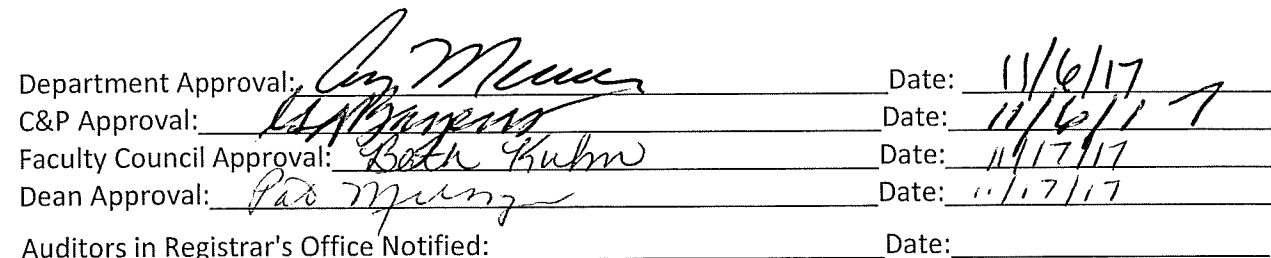 Department Approval: Date: 11/6/17
C&P Approval: Date: 11/6/17
Faculty Council Approval: Beth Kuhn Date: 11/17/17
Dean Approval: Pat Date: 11/17/17
Auditors in Registrar's Office Notified: Date: